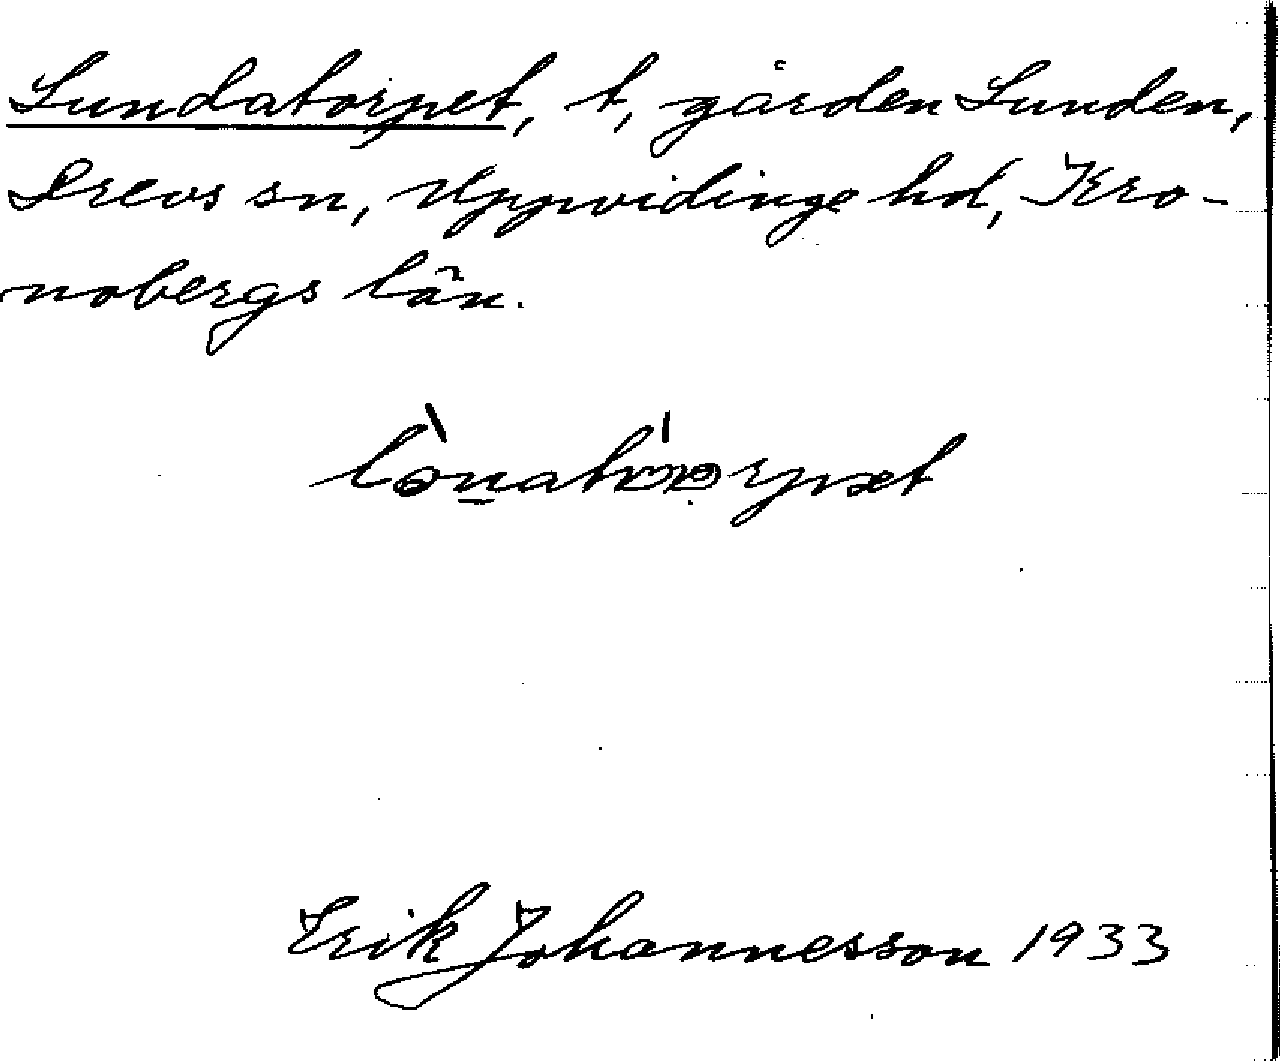 Lundatorpet, t, gården Lunden,
Drevs sn, Uppvidinge hd, Kro-
nobergs län.
Erik Johannesson 1933